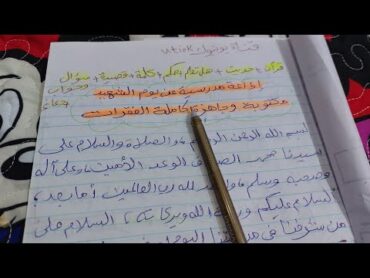 قناة يوتيوب utiok
قرآن + حديث + هل تعلم + حكم + كلمة + قصيدة + سؤال
وجواب
دعاء
إذاعة مدرسية عن يوم الشهيد
مكتوبة وجاهزة كاملة الفقرات
بسم الله الرحمن الرحيم والصلاة والسلام على
سيدنا محمد الصادق الوعد الأمين وعلى آله
وصحبه وسلم والحمد لله رب العالمين أما بعد،
السلام عليكم ورحمة الله وبركاته، السلام على
من شرفنا في